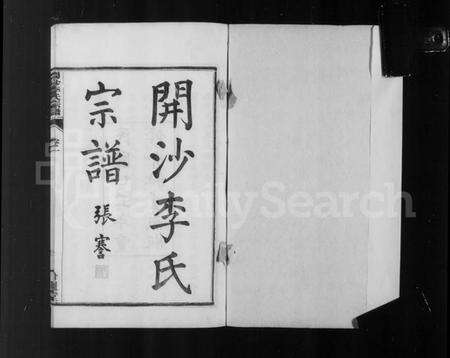 開沙李氏
宗譜
張謇
FamilySearch